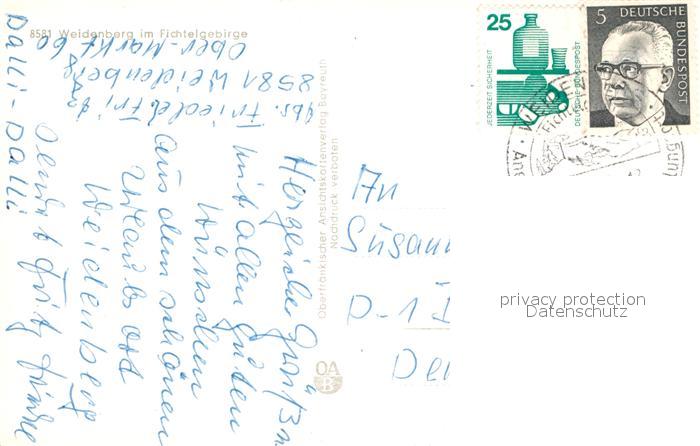 8581 Weidenberg im Fichtelgebirge
Abs. Friedel Fried
8581 Weidenberg
Ober-Markt 60
Herzlicher Gruß
mit allen guten
Wünschen
aus dem schönen
Urlaubsort
Weidenberg
sendet Fritz
Dalli-Dalli
Oberfränkischer Ansichtskartenverlag Bayreuth
Nachdruck verboten
OA
B
An
Susan
D-1
De
25
JEDERZEIT SICHERHEIT
DEUTSCHE BUNDESPOST
5
DEUTSCHE BUNDESPOST
privacy protection
Datenschutz